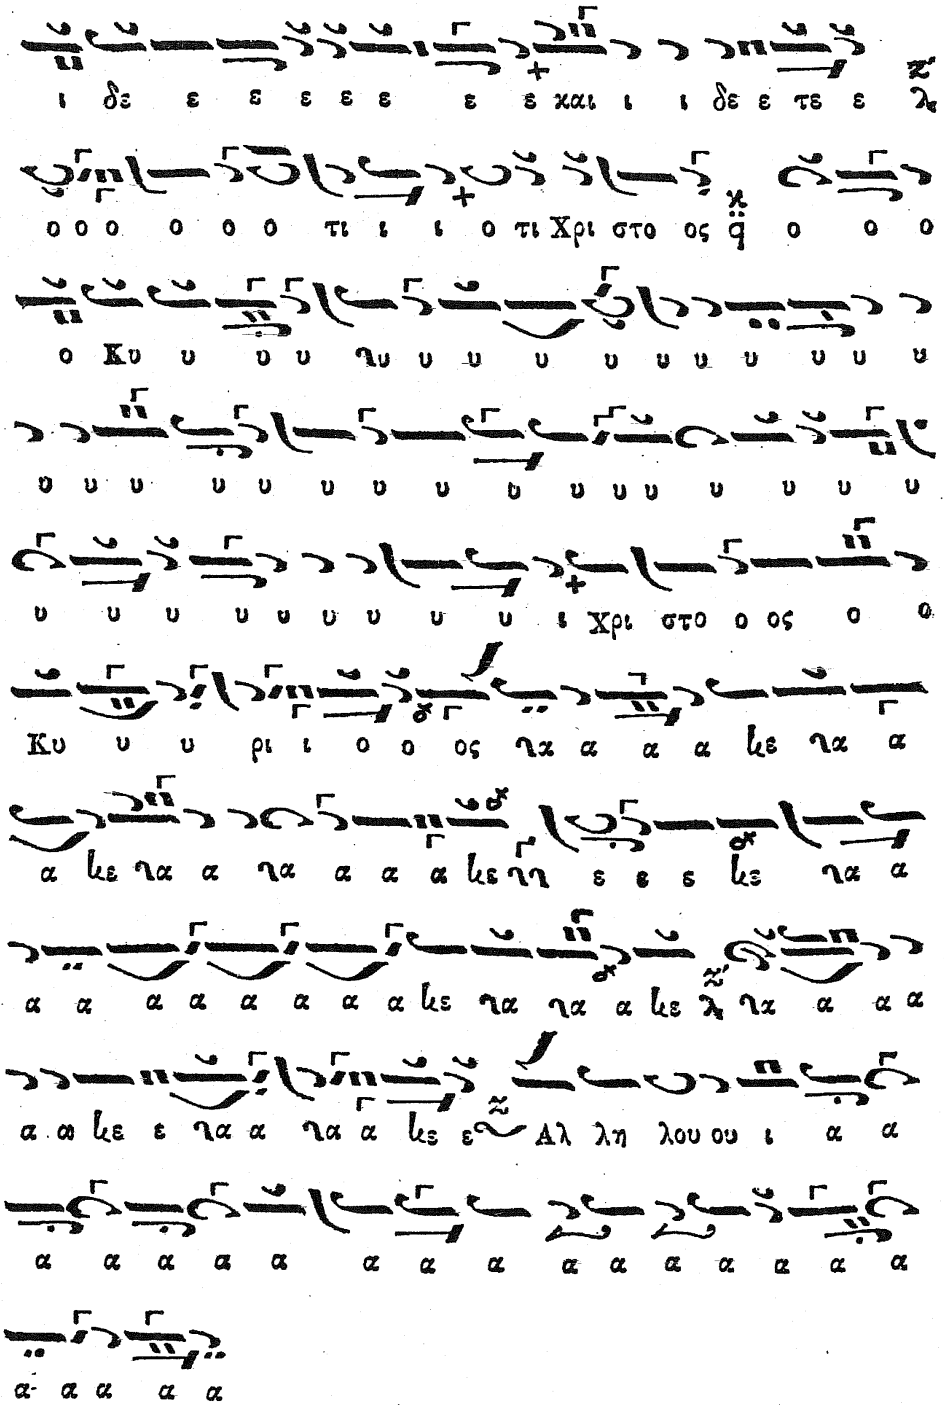 ι δε ε ε ε ε ε ε ε και ι ι δε ε τε ε
ο ο ο ο ο ο τι ι ι ο τι Χρι στο ος ο ο ο
ο Κυ υ υ υ υ υ υ υ υ υ υ υ υ υ υ
υ υ υ υ υ υ υ υ υ υ υ υ υ υ υ υ
υ υ υ υ υ υ υ υ υ ι Χρι στο ο ος ο ο
Κυ υ υ ρι ι ο ο ος να α α α κε να α
α κε να α να α α α κε νη ε ε ε κε να α
α α α α α α α α κε να να α κε να α α α
α α κε ε να α να α κε ε Αλ λη λου ου ι α α
α α α α α α α α α α α α α α α
α α α α α